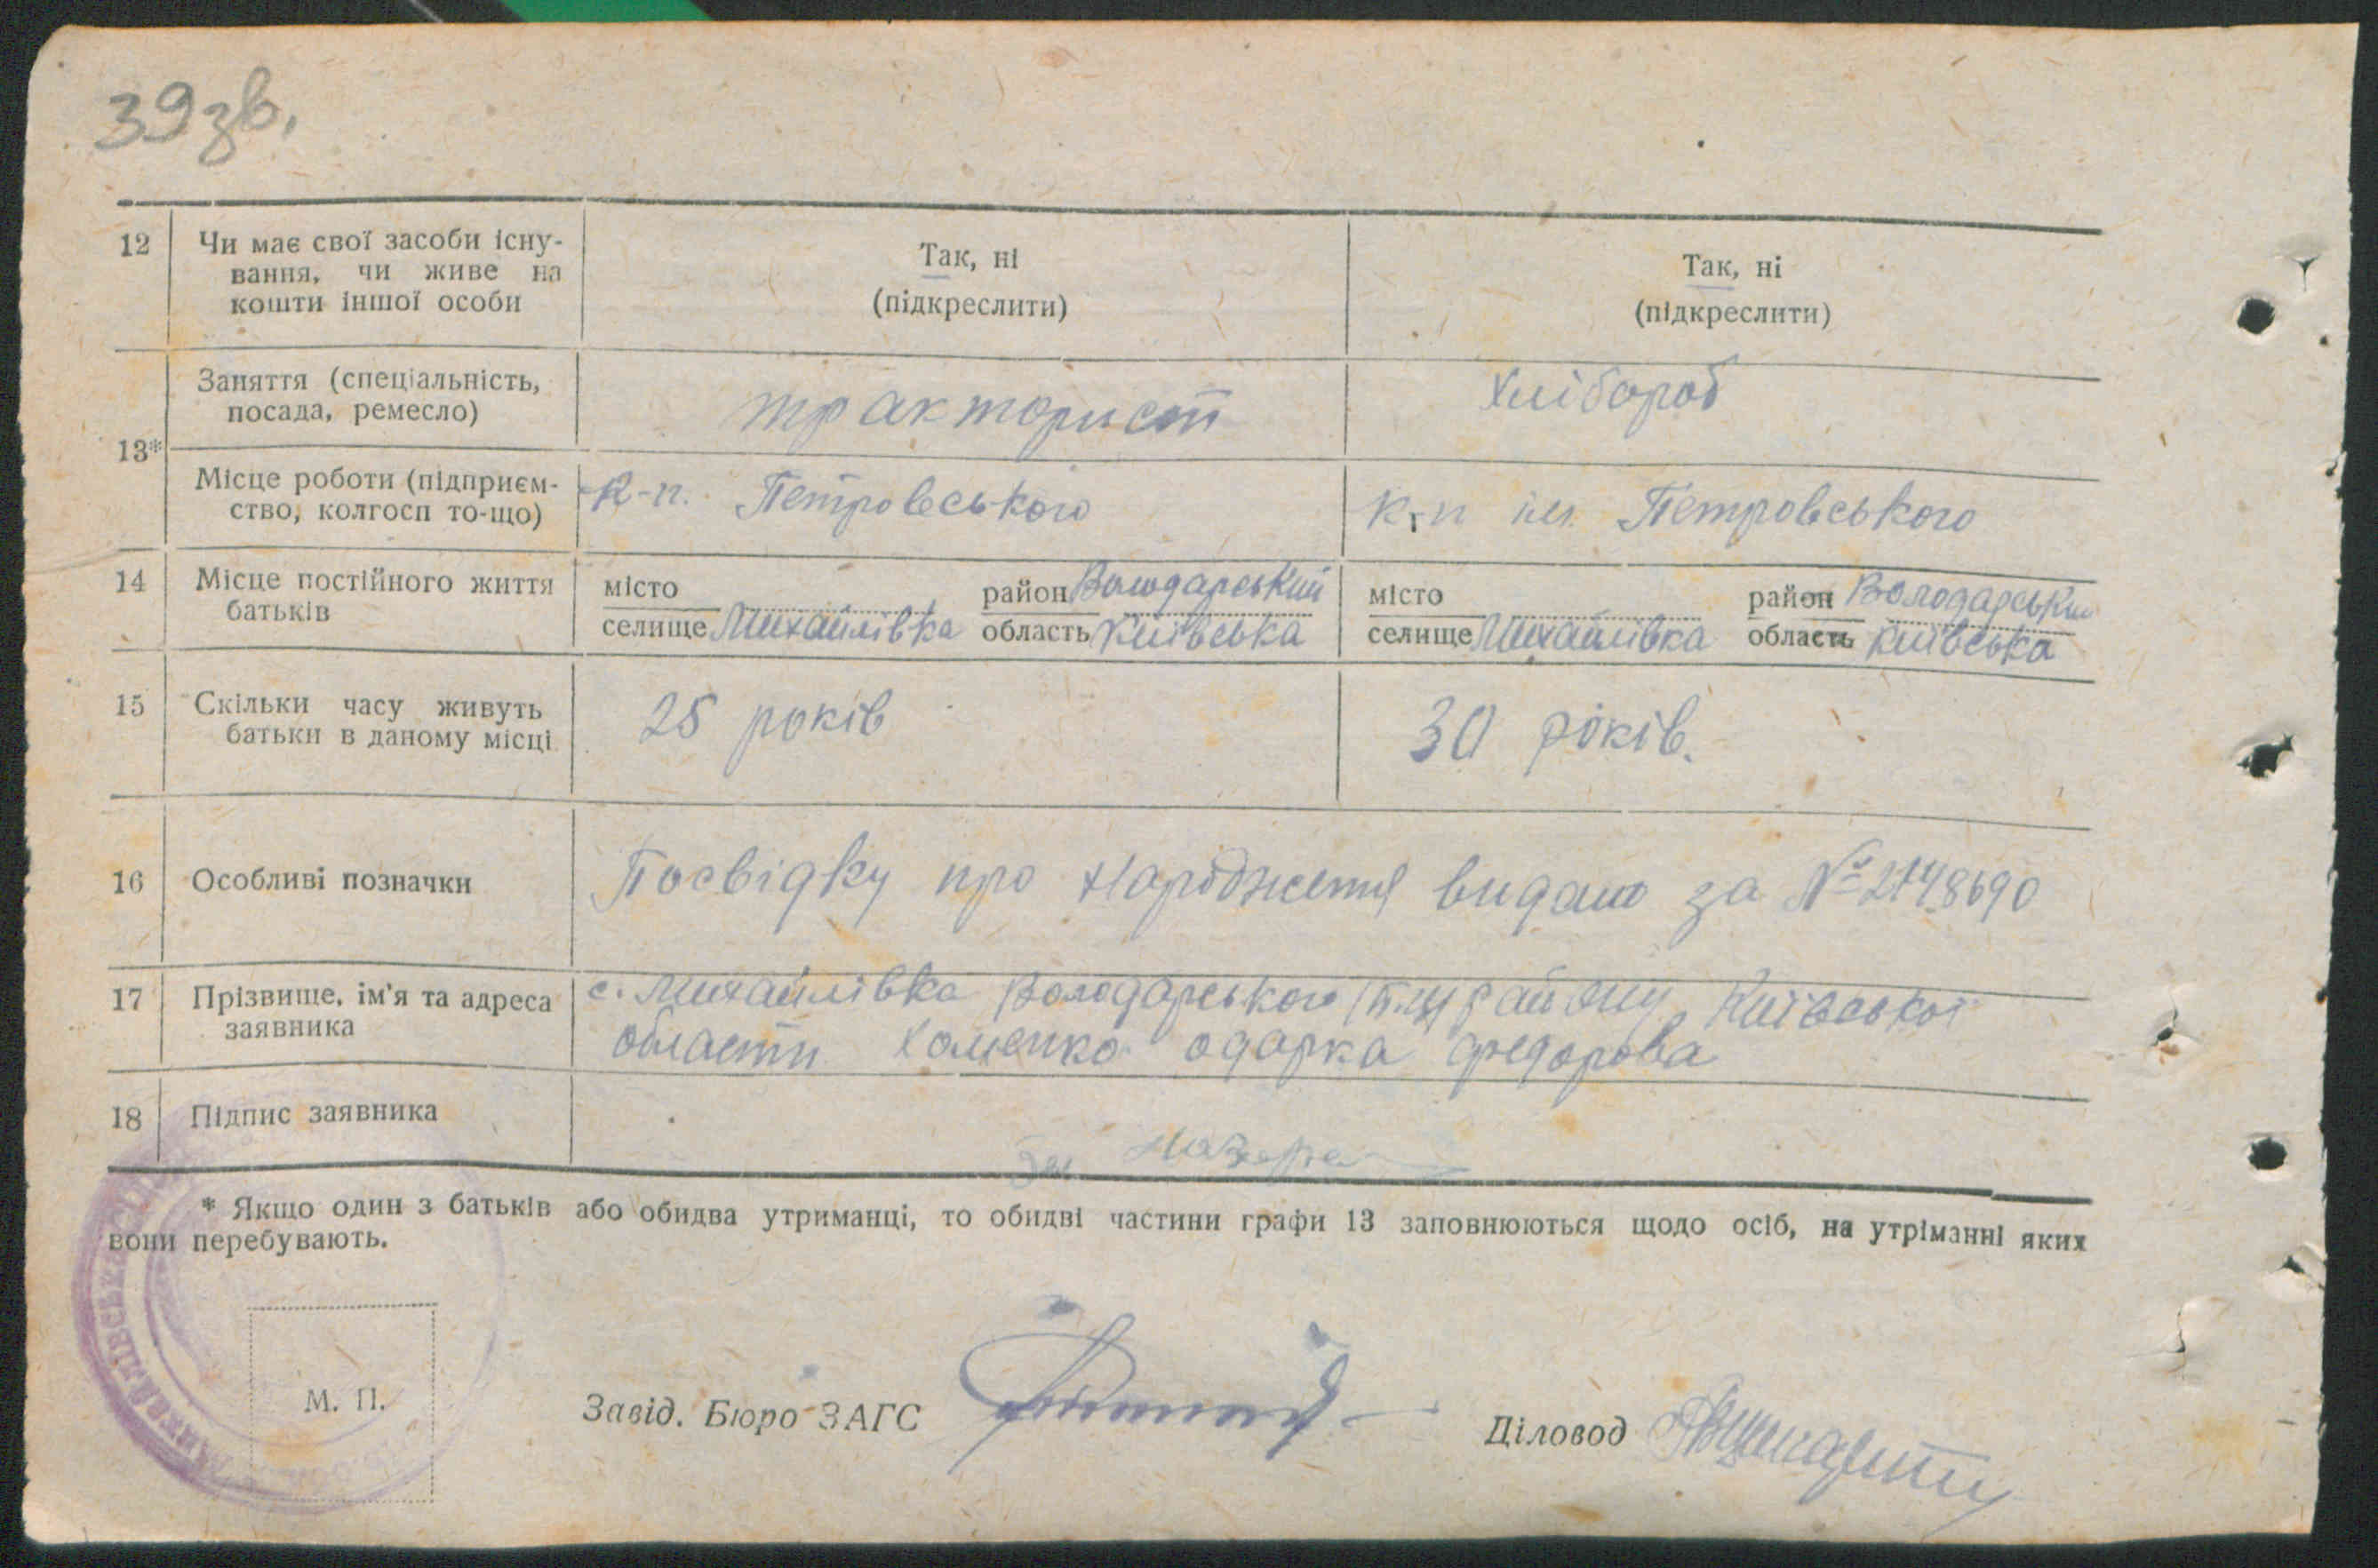 39зв.
12 Чи має свої засоби існу- Так, ні Так, ні
вання, чи живе на (підкреслити) (підкреслити)
кошти іншої особи
Заняття (спеціальність, тракторист Хлібороб
посада, ремесло)
13*
Місце роботи (підприєм- К-п. Петровського К-п ім. Петровського
ство, колгосп то-що)
14 Місце постійного життя місто район Володарський місто район Володарський
батьків селище Михайлівка область Київська селище Михайлівка область Київська
15 Скільки часу живуть 25 років 30 років.
батьки в даному місці
16 Особливі позначки Посвідку про народження видано за №
17 Прізвище, ім'я та адреса с. Михайлівка Володарського району Київської
заявника області Хоменко одарка федорова
18 Підпис заявника
* Якщо один з батьків або обидва утриманці, то обидві частини графи 13 заповнюються щодо осіб, на утріманні яких
вони перебувають.
М. П.
Завід. Бюро ЗАГС Діловод